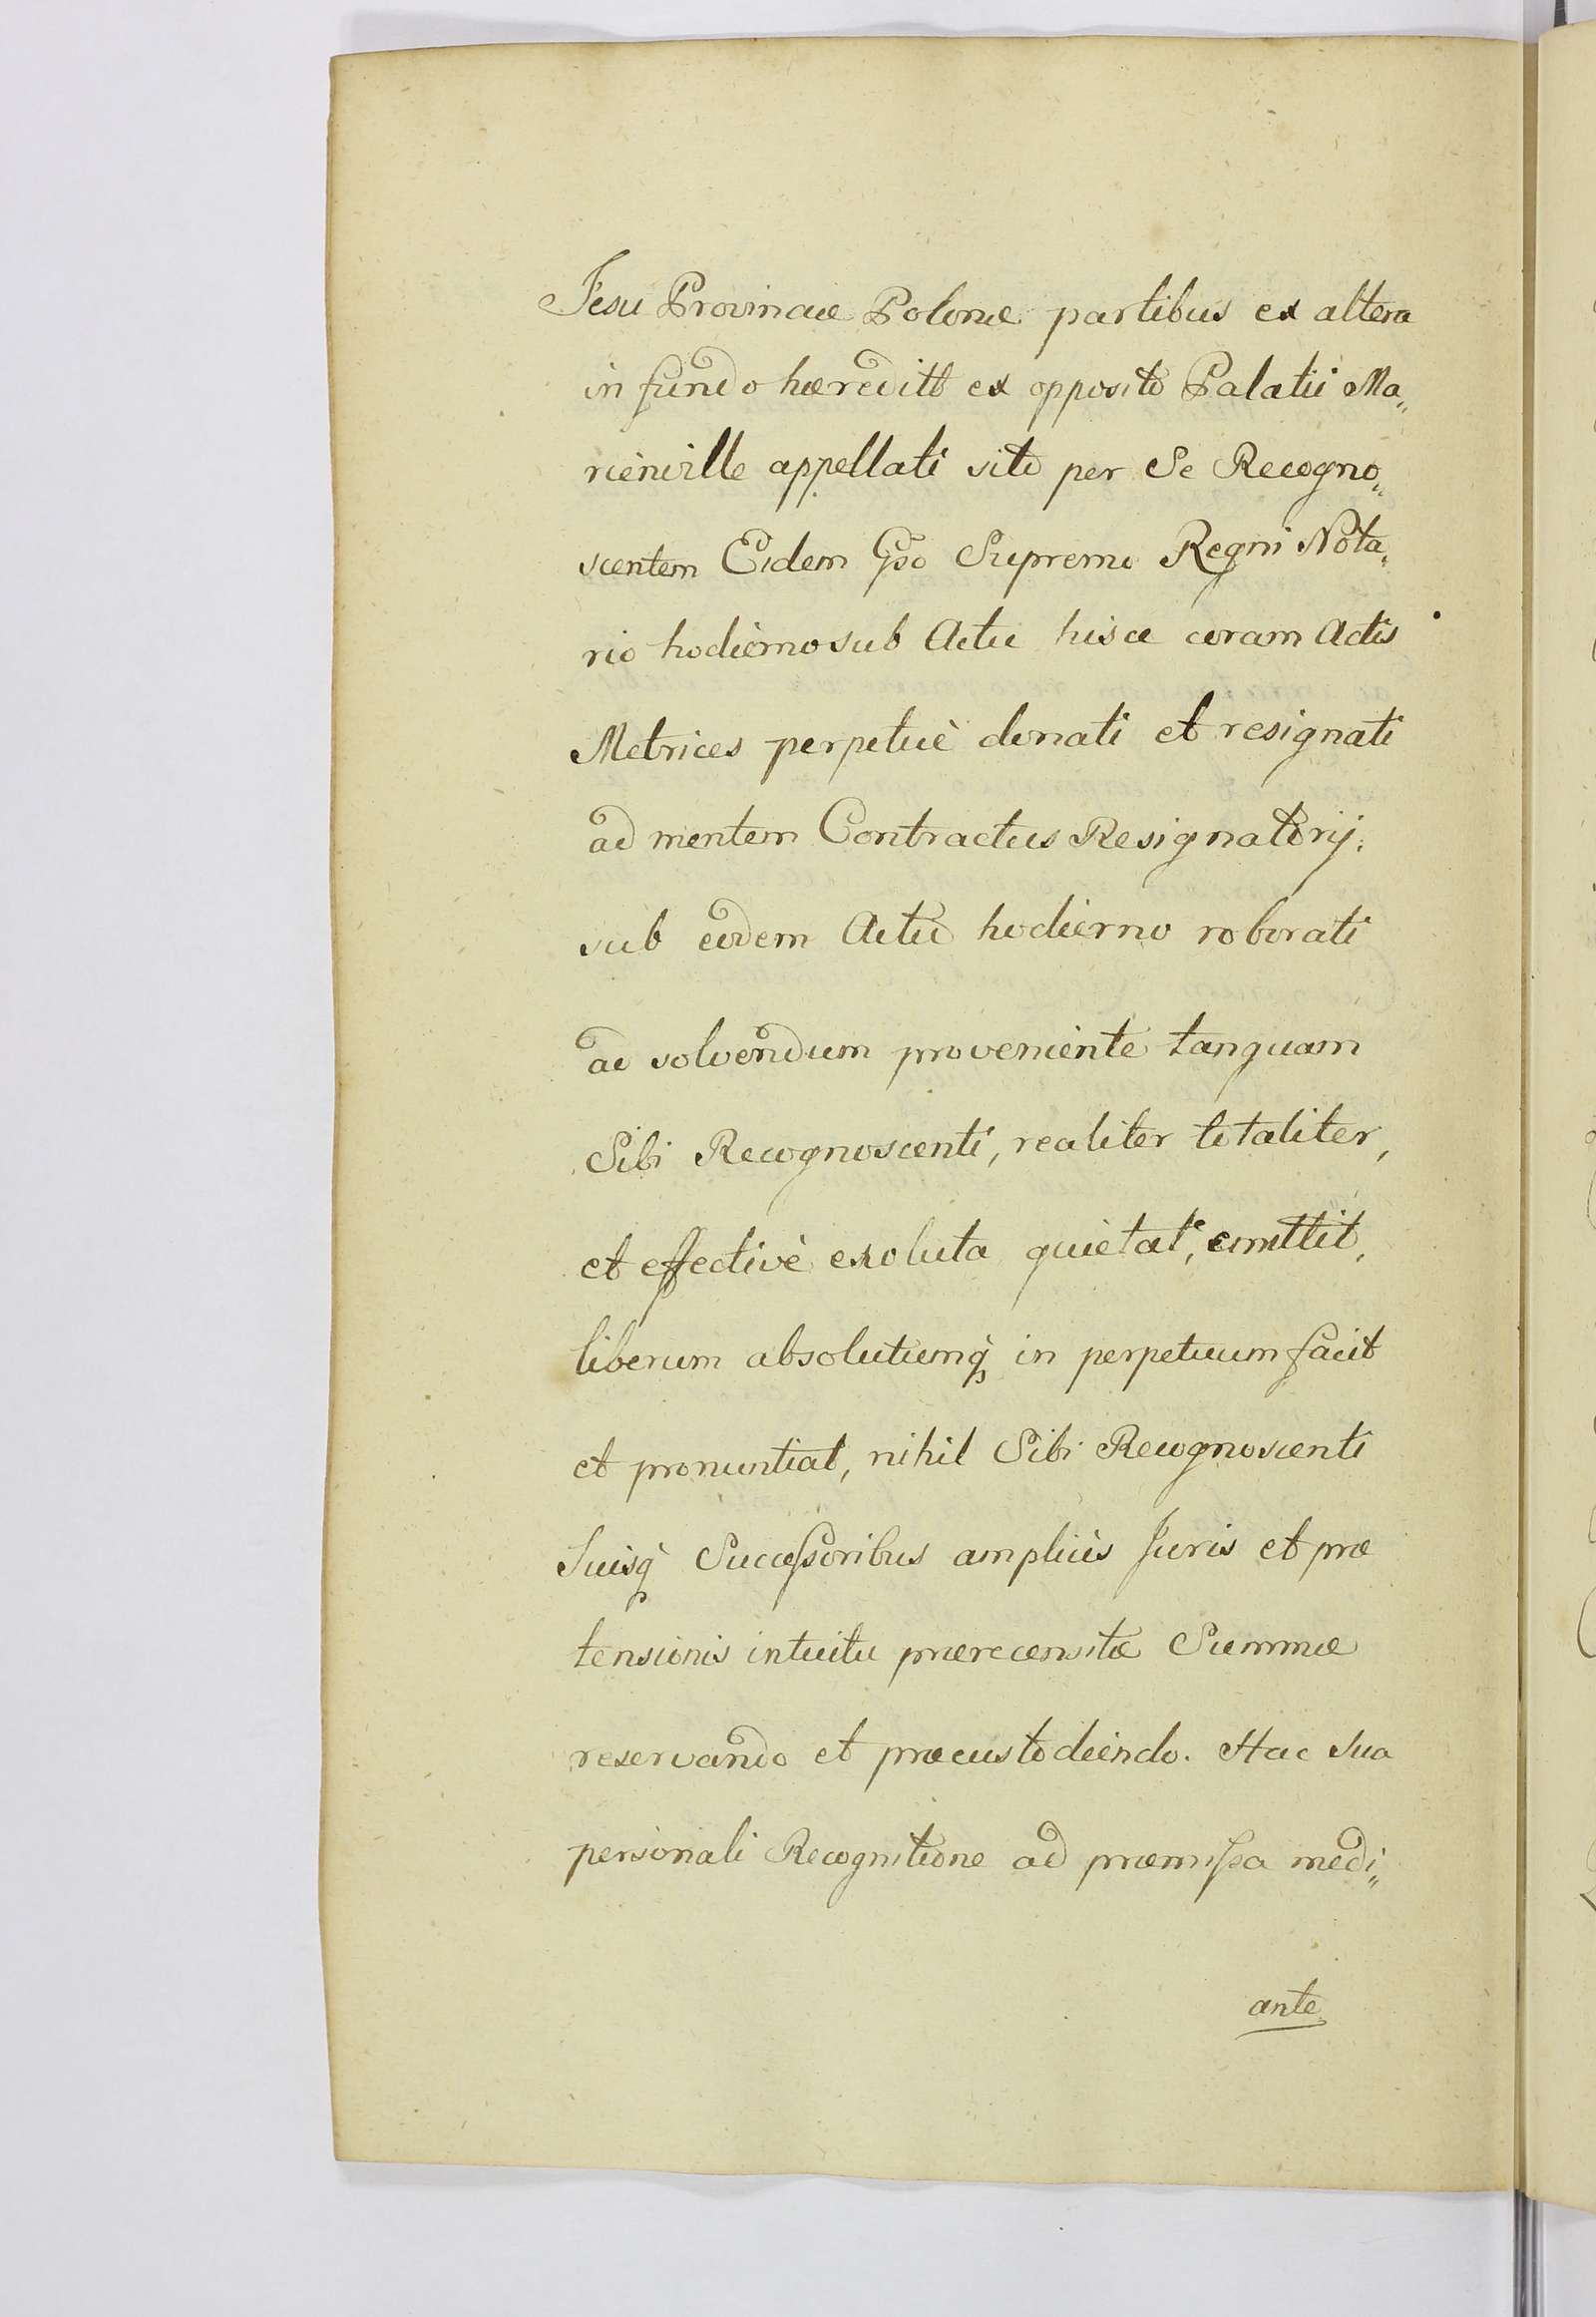 Jesu Provinciæ Polonæ partibus ex altera
in fundo hæreditt ex opposito Palatii Ma„
rienville appellati sito per Se Recogno„
scentem Eidem Gso Supremo Regni Nota„
rio hodierno sub Actu hisce coram Actis
Metrices perpetuè donati et resignati
ad mentem Contractus Resignatorij
sub eodem Actu hodierno roborati
ad solvendum proveniente tanquam
Sibi Recognoscenti, realiter totaliter,
et effectivè exoluta quietat, emittit,
liberum absolutumq; in perpetuum facit
et pronuntiat, nihil Sibi Recognoscenti
Suisq; Successoribus ampliùs Juris et præ
tensionis intuitu prærecensitæ Summæ
reservando et præcustodiendo. Hac Sua
personali Recognitione ad præmissa medi„
ante